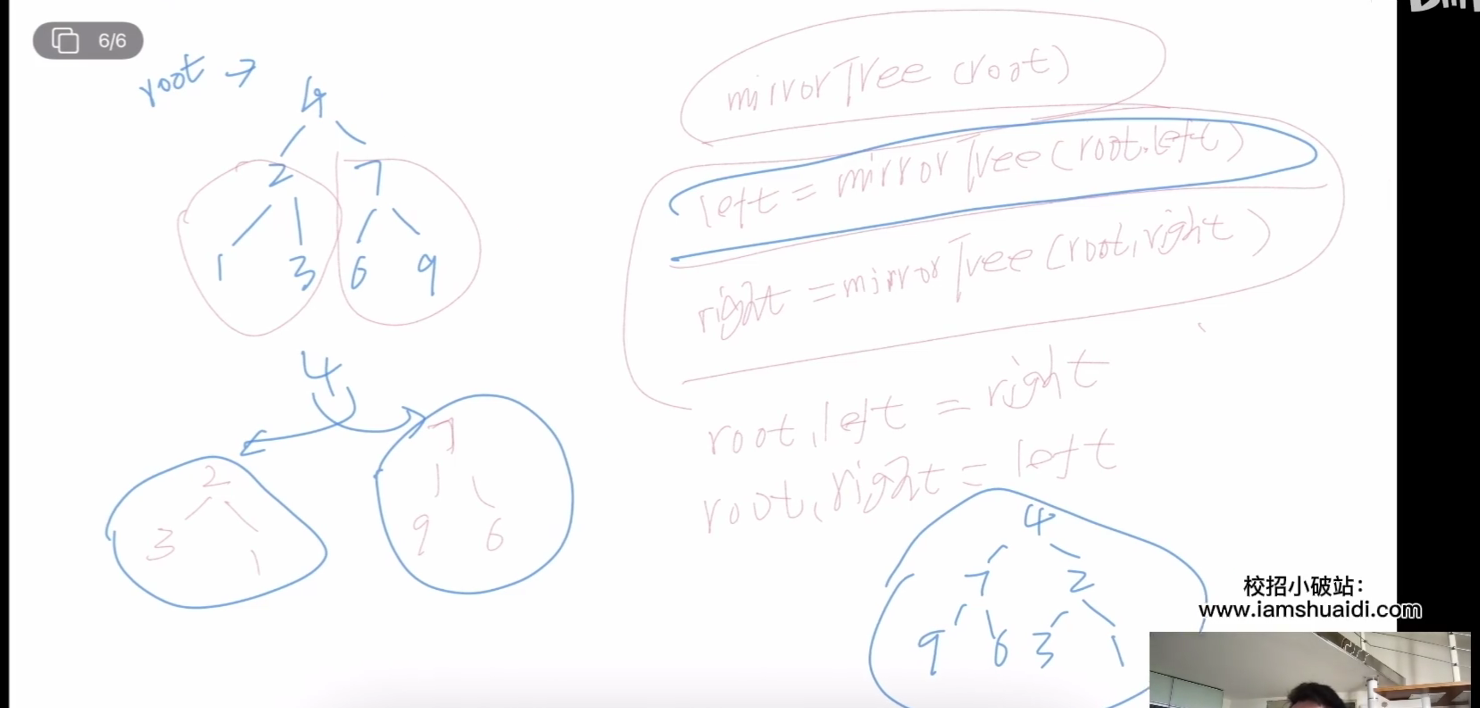 6/6
root →
4
2 7
1 3 6 9
4
2
3 1
7
9 6
mirrorTree(root)
left = mirrorTree(root.left)
right = mirrorTree(root.right)
root.left = right
root.right = left
4
7 2
9 6 3 1
校招小破站:
www.iamshuaidi.com